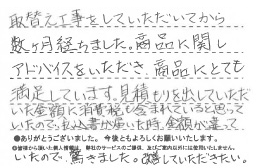 取替え工事をしていただいてから
数ヶ月経ちました。商品に関し
アドバイスをいただき、商品にとても
満足しています。見積もりを出していただ
いた金額に消費税も含まれていると思って
いたので、払込書が届いた時、金額が違って
●ありがとうございました。今後ともよろしくお願いいたします。
●皆様から頂いた個人情報は、弊社のサービスのご提供、及びご案内以外には使用いたしません。
いたので、驚きました。改善していただきたい。